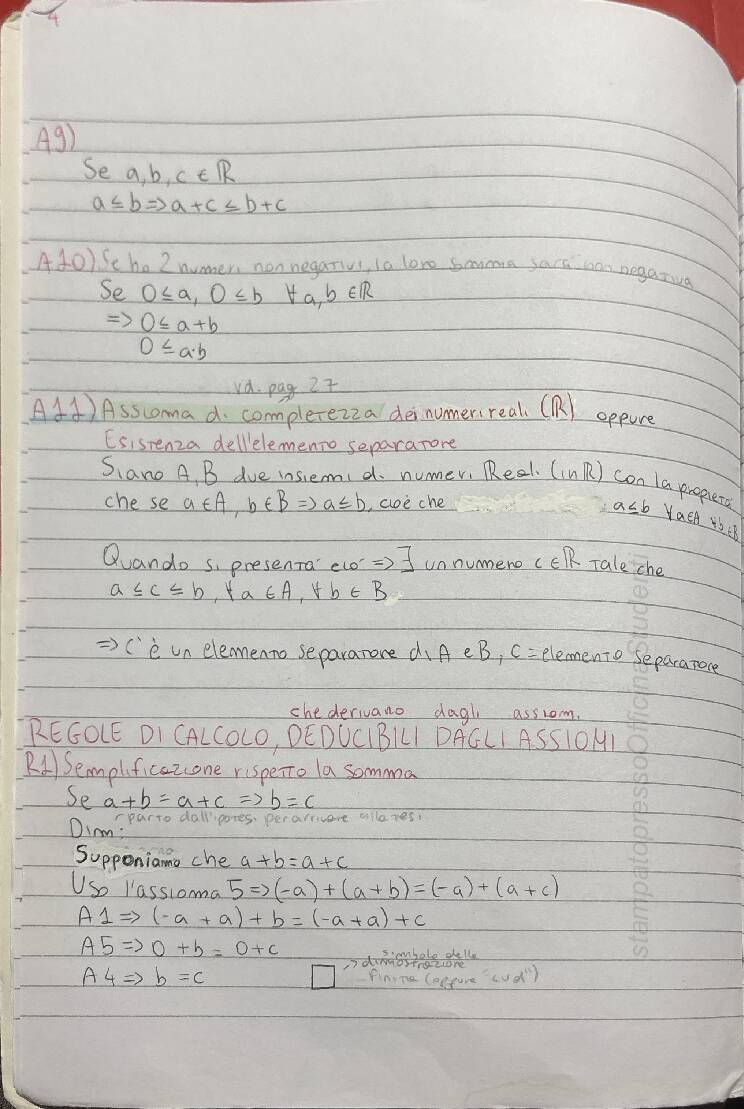 4
A9)
Se a,b,c ∈ ℝ
a ≤ b => a+c ≤ b+c
A10) Se ho 2 numeri non negativi, la loro somma sarà non negativa
Se 0 ≤ a, 0 ≤ b ∀ a,b ∈ ℝ
=> 0 ≤ a+b
0 ≤ a·b
vd. pag 27
A11) Assioma di completezza dei numeri reali (ℝ) oppure
Esistenza dell'elemento separatore
Siano A,B due insiemi di numeri Reali (in ℝ) con la proprietà
che se a ∈ A, b ∈ B => a ≤ b, cioè che a ≤ b ∀a∈A ∀b∈B
Quando si presenta ciò => ∃ un numero c ∈ ℝ tale che
a ≤ c ≤ b, ∀ a ∈ A, ∀ b ∈ B
=> C'è un elemento separatore di A e B, C = elemento separatore
che derivano dagli assiomi
REGOLE DI CALCOLO, DEDUCIBILI DAGLI ASSIOMI
R1) Semplificazione rispetto la somma
Se a+b = a+c => b=c
parto dall'ipotesi per arrivare alla tesi
Dim:
Supponiamo che a+b = a+c
Uso l'assioma 5 => (-a) + (a+b) = (-a) + (a+c)
A1 => (-a + a) + b = (-a+a) + c
A5 => 0 + b = 0+c
A4 => b = c
□ -> simbolo della
dimostrazione
finita (oppure "cvd")
stampatopressoOfficinaStudenti